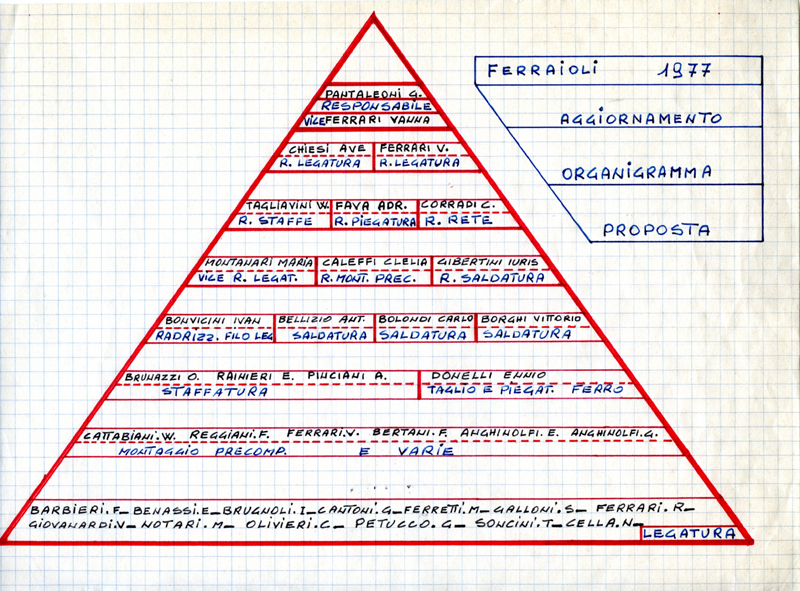 FERRAIOLI 1977
AGGIORNAMENTO
ORGANIGRAMMA
PROPOSTA
PANTALEONI G.
RESPONSABILE
VICE FERRARI VANNA
CHIESI AVE FERRARI V.
R. LEGATURA R.LEGATURA
TAGLIAVINI W. FAVA ADR. CORRADI C.
R. STAFFE R. PIEGATURA R. RETE
MONTANARI MARIA CALEFFI CLELIA GIBERTINI IURIS
VICE R. LEGAT. R. MONT. PREC. R. SALDATURA
BONVICINI IVAN BELLIZIO ANT. BOLONDI CARLO BORGHI VITTORIO
RADRIZZ. FILO LEG SALDATURA SALDATURA SALDATURA
BRUNAZZI O. RAINIERI E. PINCIANI A. DONELLI ENNIO
STAFFATURA TAGLIO E PIEGAT. FERRO
CATTABIANI.W. REGGIANI.F. FERRARI.V. BERTANI.F. ANGHINOLFI.E. ANGHINOLFI.G.
MONTAGGIO PRECOMP. E VARIE
BARBIERI.F_ BENASSI.E_ BRUGNOLI.I_ CANTONI.G_ FERRETTI.M_ GALLONI.S_ FERRARI.R_
GIOVANARDI.V_ NOTARI.M_ OLIVIERI.C_ PETUCCO.G_ SONCINI.T_ CELLA.N_
LEGATURA